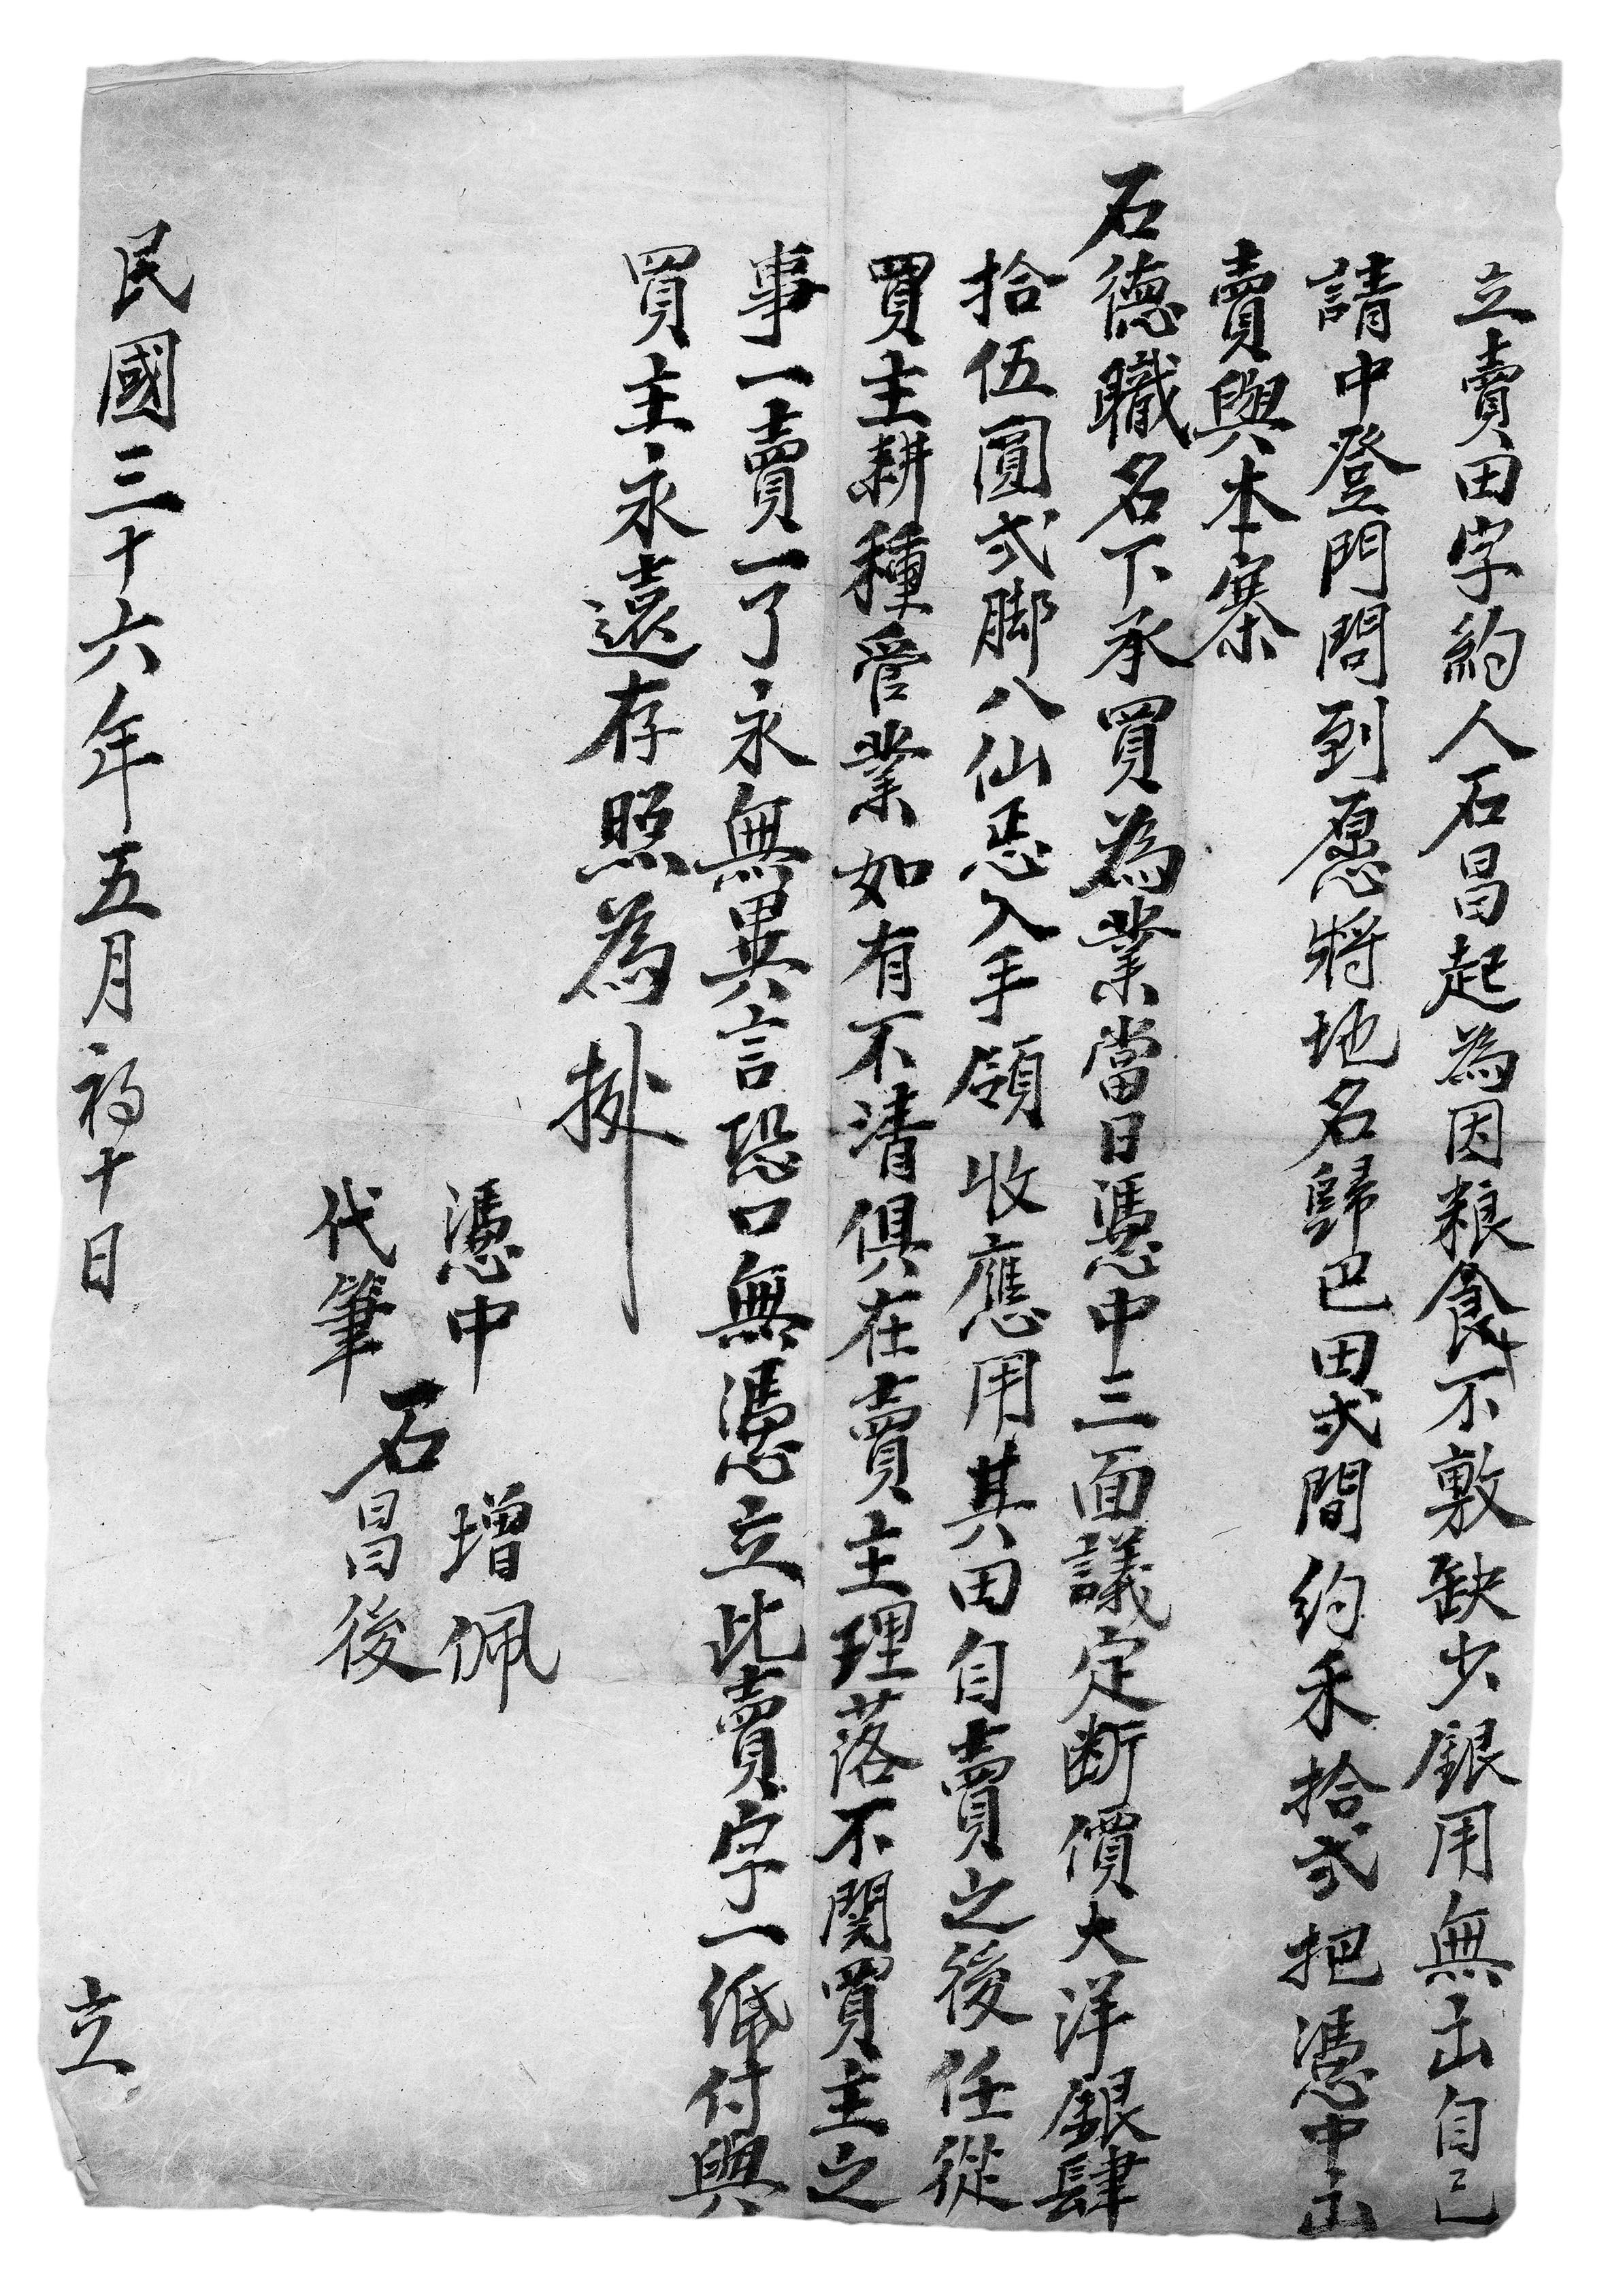 立賣田字約人石昌起為因粮食不敷缺少銀用無出自己
請中登門問到愿將地名歸巴田弍間約禾拾弍把憑中出
賣與本寨
石德職名下承買為業當日憑中三面議定断價大洋銀肆
拾伍圓弍脚八仙悉入手領收應用其田自賣之後任從
買主耕種管業如有不清俱在賣主理落不関買主之
事一賣一了永無異言恐口無憑立此賣字一纸付與
買主永遠存照為
憑中 石增佩
代筆 石昌後
民國三十六年五月初十日 立